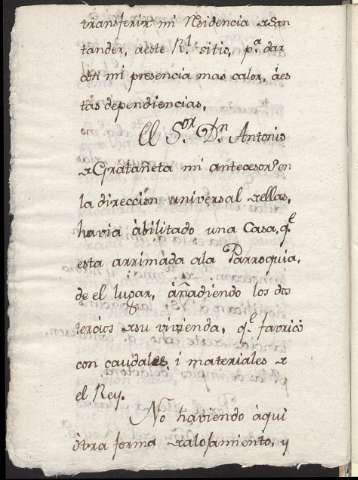 transferir mi Residencia de San
tander, à este Rl. sitio, pa. dar
con mi presencia mas calor, à es
tas dependiencias.
El Sor. Dn. Antonio
de Gaztañeta mi antecesor en
la direcciòn universal de ellas,
havia àbilitado una Casa, qe.
esta arrimada ala Parroquia,
de el lugar, àñadiendo los dos
tercios de su vivienda, qe. fabricò
con caudales, i materiales de
el Rey.
No haviendo àqui
òtra forma de alojamiento, y